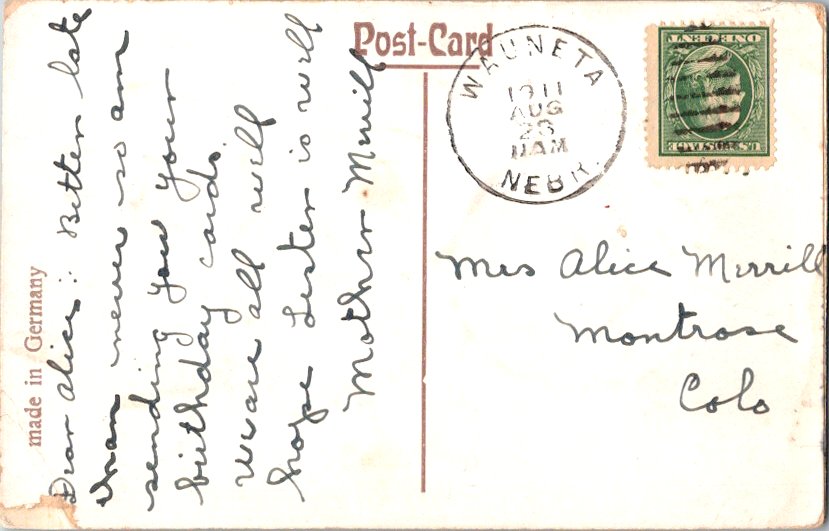 Post-Card
WAUNETA
1911
AUG
23
11AM
NEBR.
U.S. POSTAGE
ONE CENT
made in Germany
Dear Alice: Better late
than never so am
sending you your
birthday cards.
We are all well
hope Lester is well
Mother Merrill
Mrs Alice Merrill
Montrose
Colo